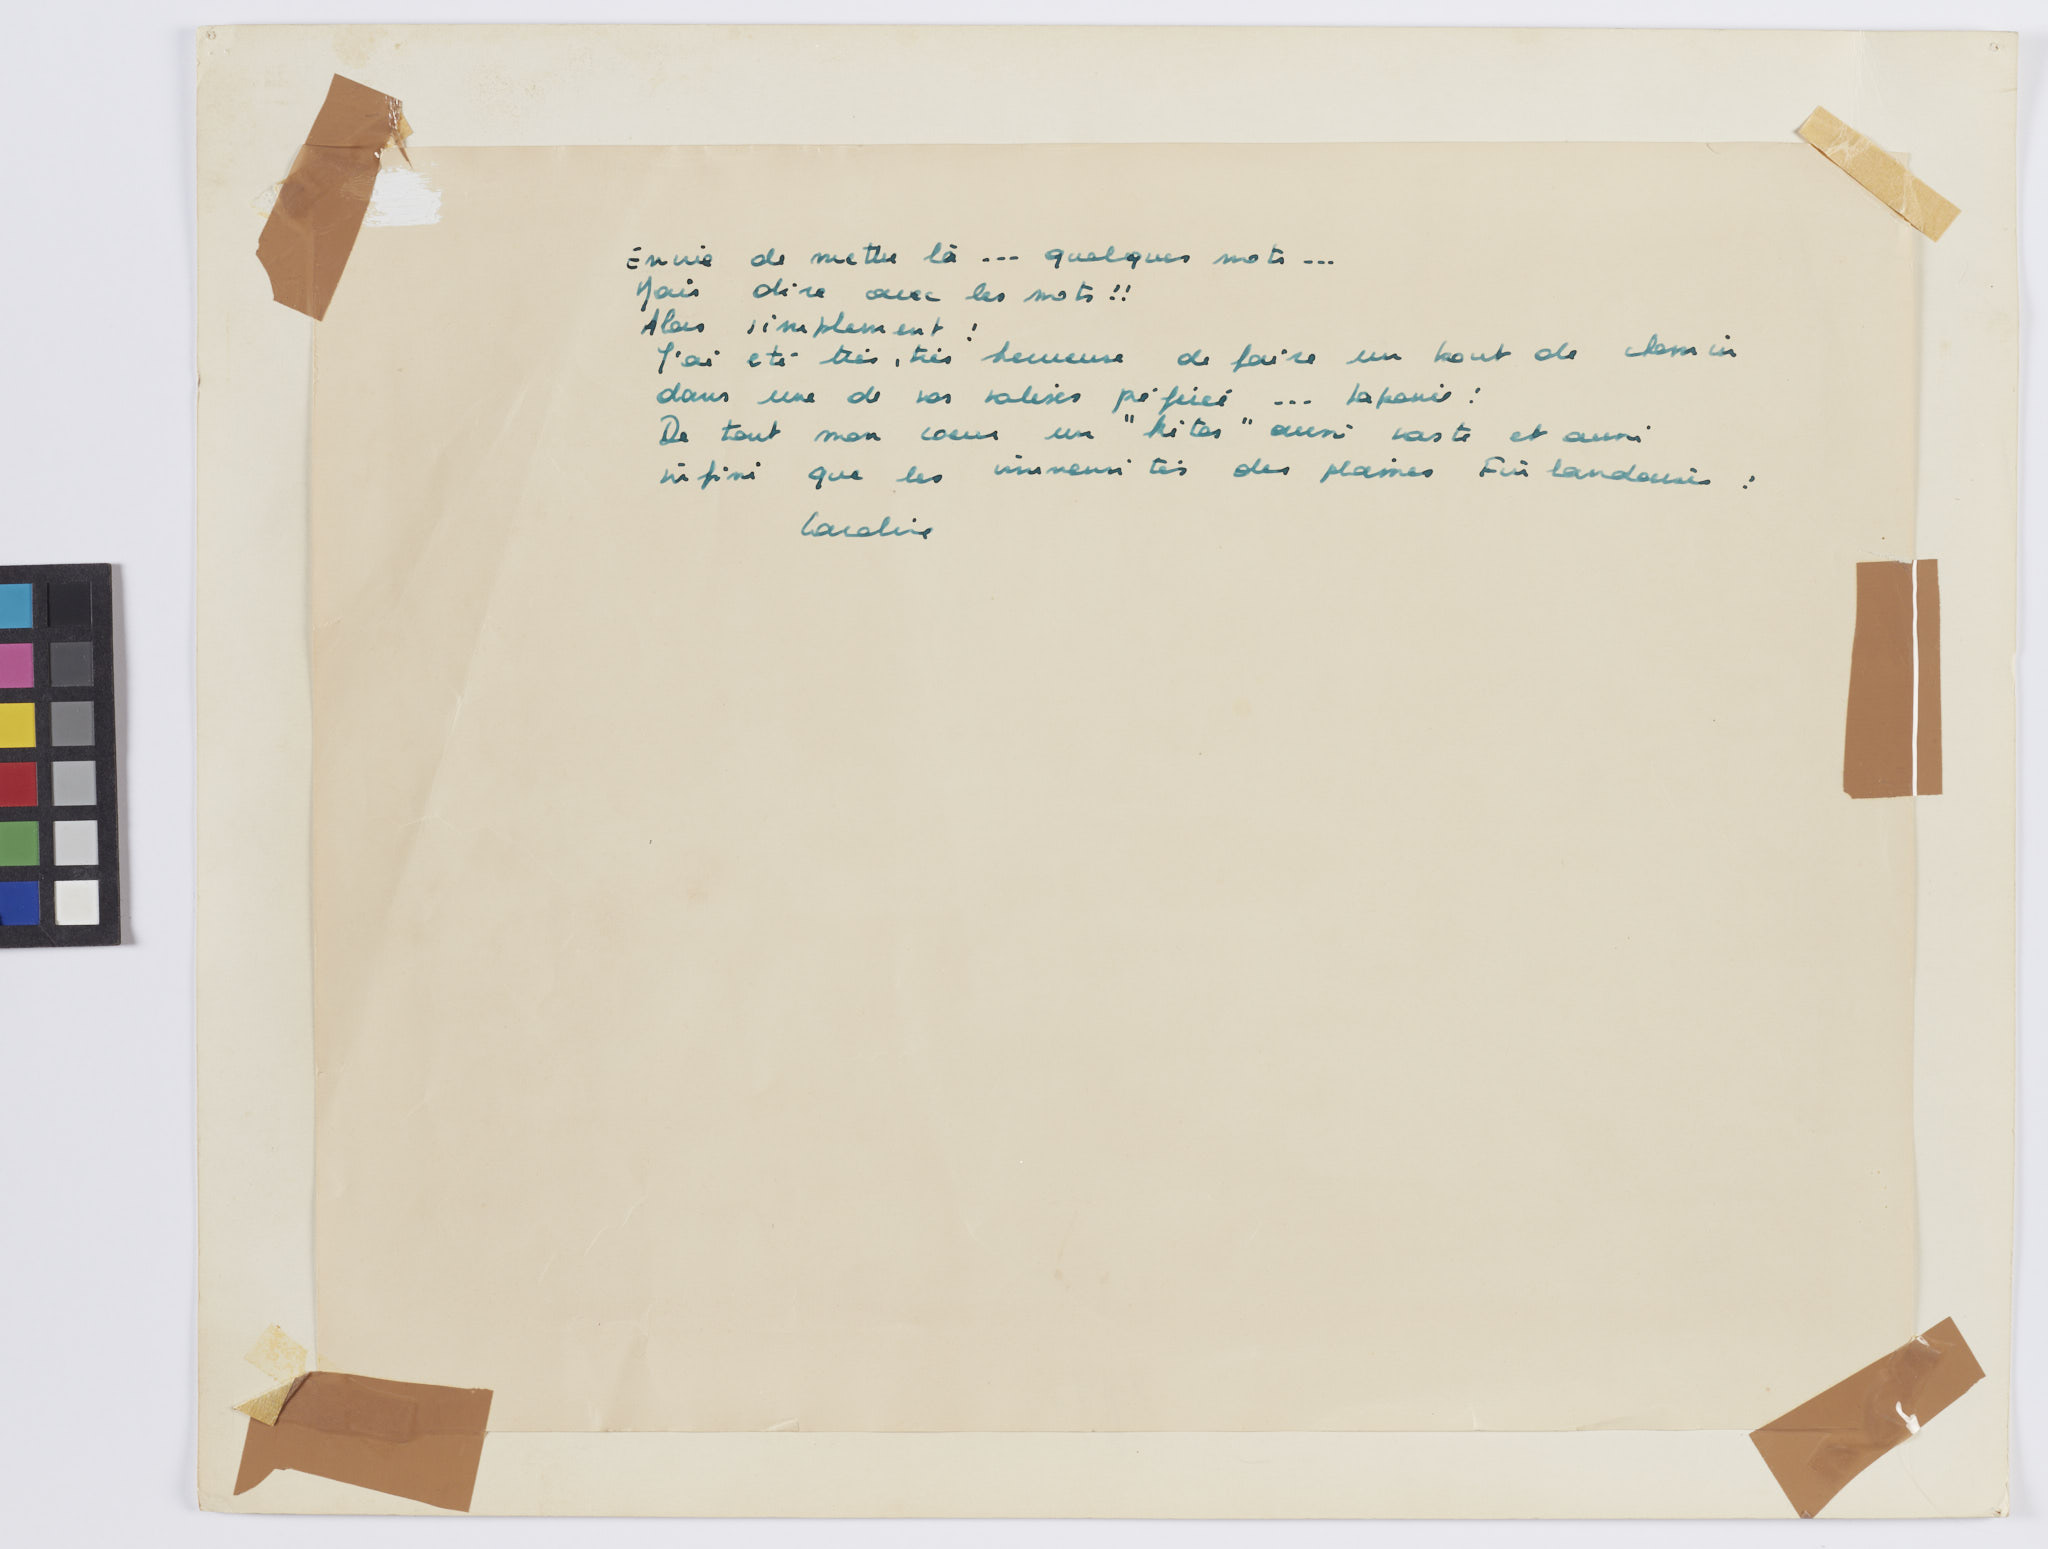 Envie de mettre là --- quelques mots ---
Mais dire avec les mots !!
Alors simplement !
J'ai été très, très heureuse de faire un bout de chemin
dans une de vos valises préférée --- Laponie !
De tout mon coeur un "kitos" aussi vaste et aussi
infini que les immensités des plaines Finlandaises !
Caroline